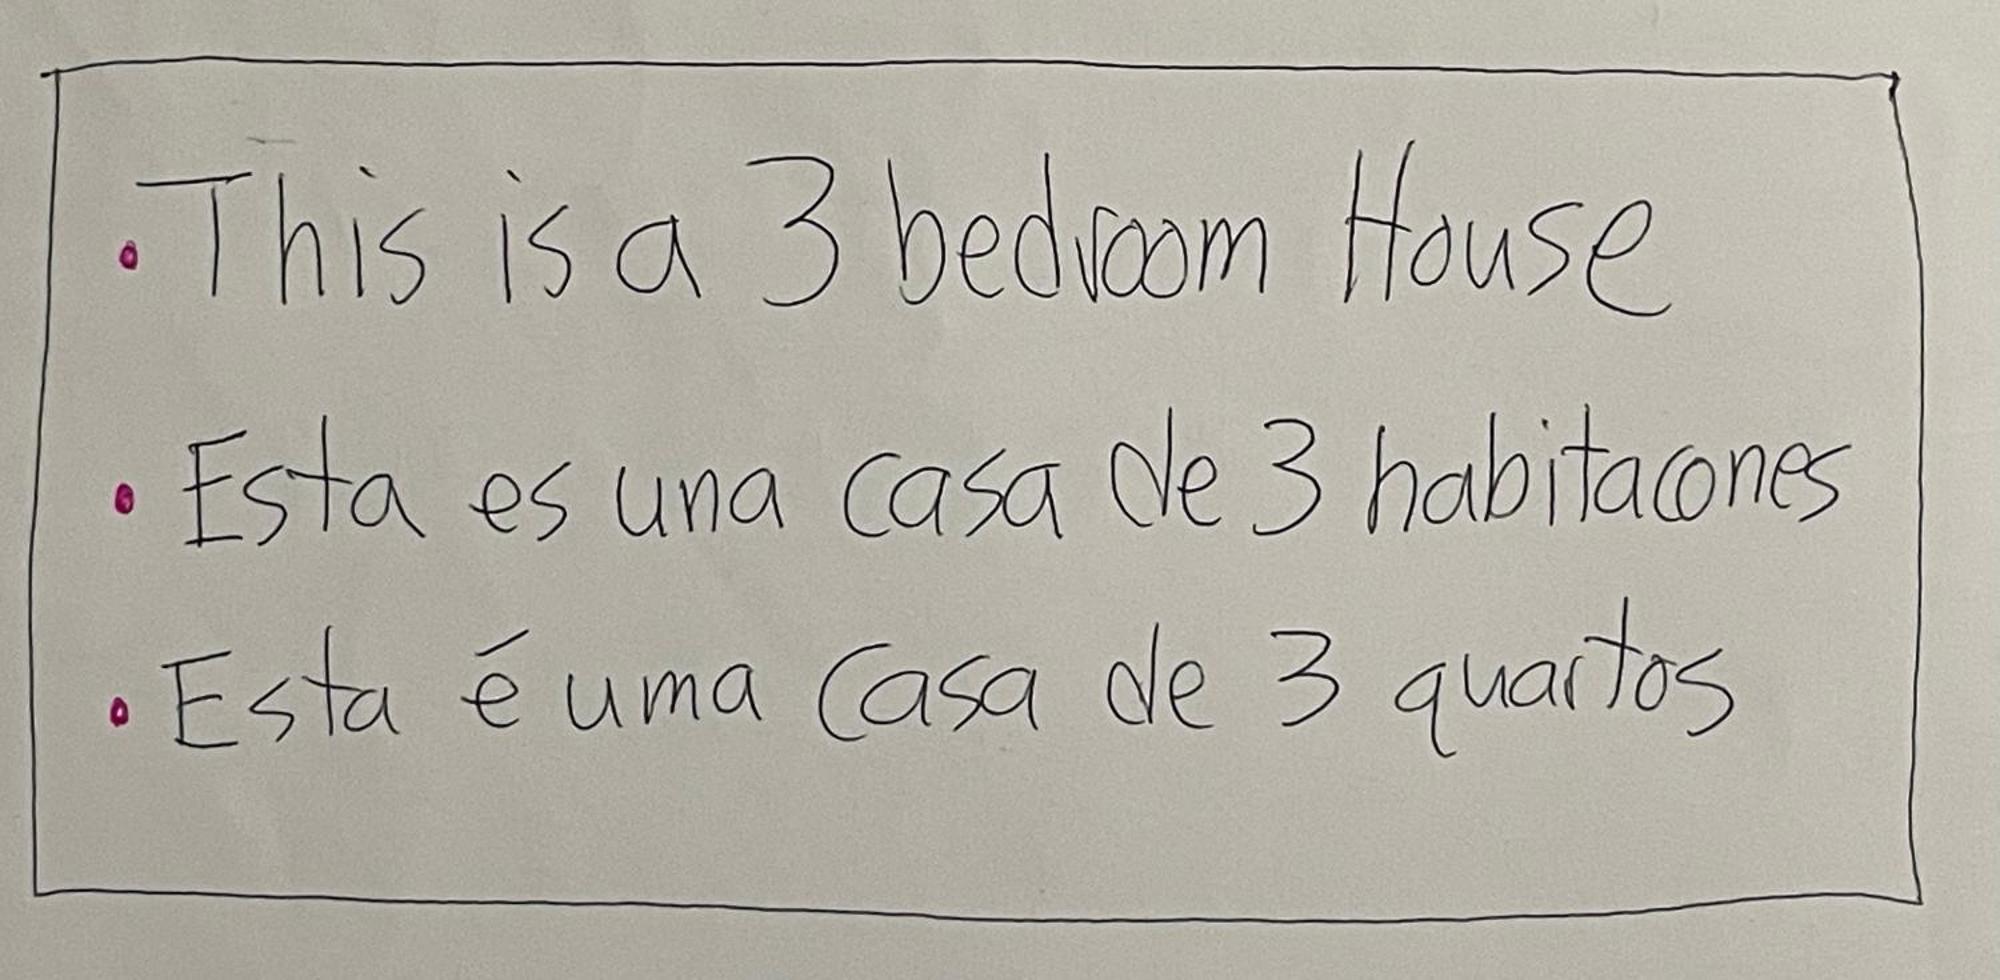 · This is a 3 bedroom House
· Esta es una casa de 3 habitacones
· Esta é uma casa de 3 quartos